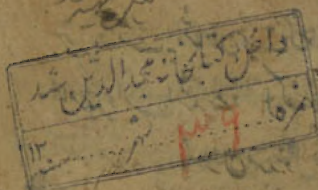 داخل کتابخانه مجدالدین شد
نمره ۳۶ شهر سنه ۱۳